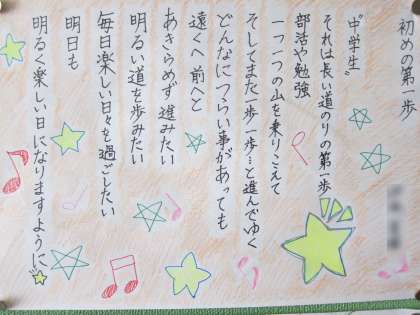 初めの第一歩
“中学生”
それは長い道のりの第一歩
部活や勉強
一つ一つの山を乗りこえて
そしてまた一歩一歩…と進んでゆく
どんなにつらい事があっても
遠くへ前へと
あきらめず進みたい
明るい道を歩みたい
毎日楽しい日々を過ごしたい
明日も
明るく楽しい日になりますように